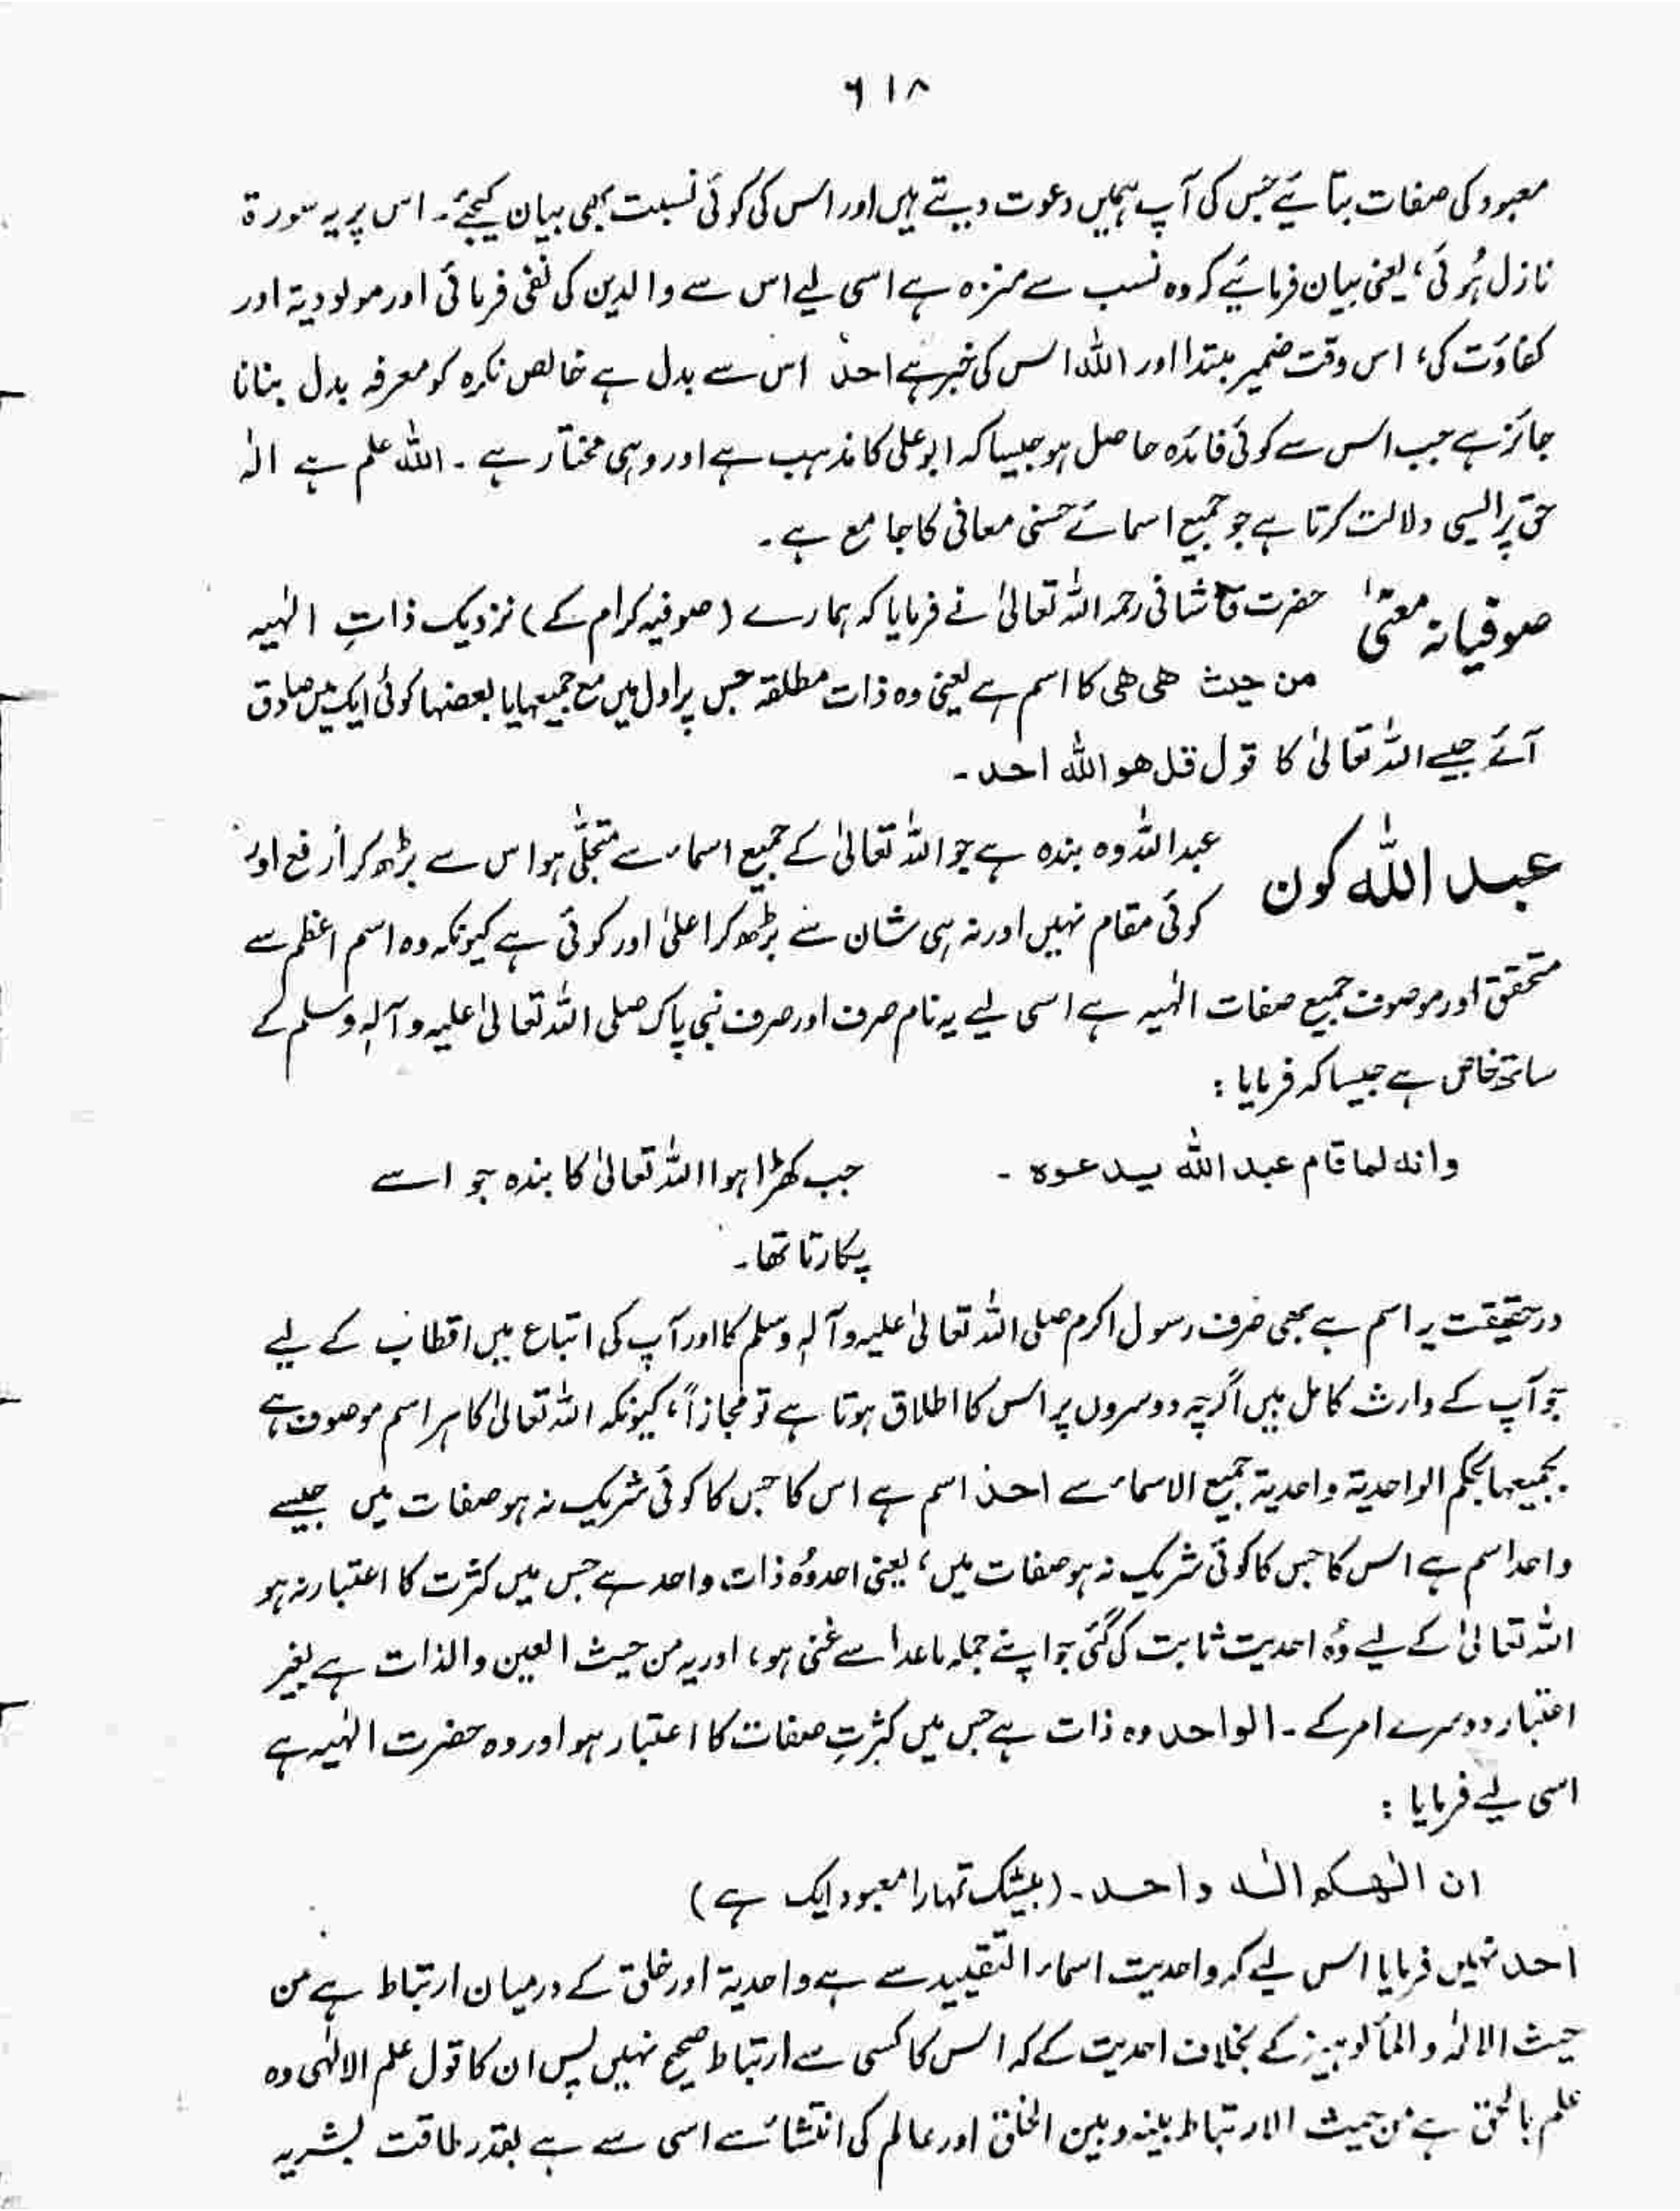 ۶۱۸
معبود کی صفات بتائیے جس کی آپ ہمیں دعوت دیتے ہیں اور اس کی کوئی نسبت بھی بیان کیجئے۔ اس پر یہ سورۃ
نازل ہُوئی، یعنی بیان فرمائیے کہ وہ نسب سے منزہ ہے اسی لیے اس سے والدین کی نفی فرمائی اور مولودیۃ اور
کفاوَت کی، اس وقت ضمیر مبتدا اور اللہ اس کی خبر ہے احدٌ اس سے بدل ہے خالص نکرہ کو معرفہ بدل بنانا
جائز ہے جب اس سے کوئی فائدہ حاصل ہو جیسا کہ ابو علی کا مذہب ہے اور وہی مختار ہے۔ اللہ علم ہے الٰہ
حق پر ایسی دلالت کرتا ہے جو جمیع اسمائے حسنٰی معانی کا جامع ہے۔
صوفیانہ معنیٰ حضرت قاشانی رحمہ اللہ تعالیٰ نے فرمایا کہ ہمارے (صوفیہ کرام کے) نزدیک ذاتِ الٰہیہ
من حیث ھی ھی کا اسم ہے یعنی وہ ذات مطلقہ جس پر اول میں مع جمیعہا یا بعضہا کوئی ایک میں صادق
آئے جیسے اللہ تعالیٰ کا قول قل ھو اللہ احد۔
عبد اللہ کون عبد اللہ وہ بندہ ہے جو اللہ تعالیٰ کے جمیع اسماء سے متجلّی ہو اس سے بڑھ کر ارفع اور
کوئی مقام نہیں اور نہ ہی شان سے بڑھ کر اعلیٰ اور کوئی ہے کیونکہ وہ اسم اعظم سے
متحقق اور موصوف جمیع صفات الٰہیہ ہے اسی لیے یہ نام صرف اور صرف نبی پاک صلی اللہ تعالیٰ علیہ و آلہٖ وسلم کے
ساتھ خاص ہے جیسا کہ فرمایا :
وانہ لما قام عبد اللہ یدعوہ ۔ جب کھڑا ہوا اللہ تعالیٰ کا بندہ جو اسے
پکارتا تھا۔
درحقیقت یہ اسم ہے بھی صرف رسول اکرم صلی اللہ تعالیٰ علیہ وآلہٖ وسلم کا اور آپ کی اتباع میں اقطاب کے لیے
جو آپ کے وارث کامل ہیں اگرچہ دوسروں پر اس کا اطلاق ہوتا ہے تو مجازاً، کیونکہ اللہ تعالیٰ کا ہر اسم موصوف ہے
بجمیعہا بحکم الواحدیۃ واحدیۃ جمیع الاسماء سے احدٌ اسم ہے اس کا جس کا کوئی شریک نہ ہو صفات میں جیسے
واحد اسم ہے اس کا جس کا کوئی شریک نہ ہو صفات میں، یعنی احد وُہ ذات واحد ہے جس میں کثرت کا اعتبار نہ ہو
اللہ تعالیٰ کے لیے وُہ احدیت ثابت کی گئی جو اپنے جملہ ماعدا سے غنی ہو، اور یہ من حیث العین والذات ہے بغیر
اعتبار دوسرے امر کے۔ الواحد وہ ذات ہے جس میں کثرتِ صفات کا اعتبار ہو اور وہ حضرت الٰہیہ ہے
اسی لیے فرمایا :
ان الٰھکم الٰہ واحد۔ (بیشک تمہارا معبود ایک ہے)
احد نہیں فرمایا اس لیے کہ واحدیت اسماء التقیید سے ہے واحدیۃ اور خلق کے درمیان ارتباط ہے من
حیث الالٰہ و المألوہیۃ کے بخلاف احدیت کے کہ اس کا کسی سے ارتباط صحیح نہیں پس ان کا قول علم الالٰہی وہ
علم بالحق ہے من حیث الارتباط بینہ وبین الخلق اور عالم کی انتشاء سے اسی سے ہے بقدر طاقت بشریہ